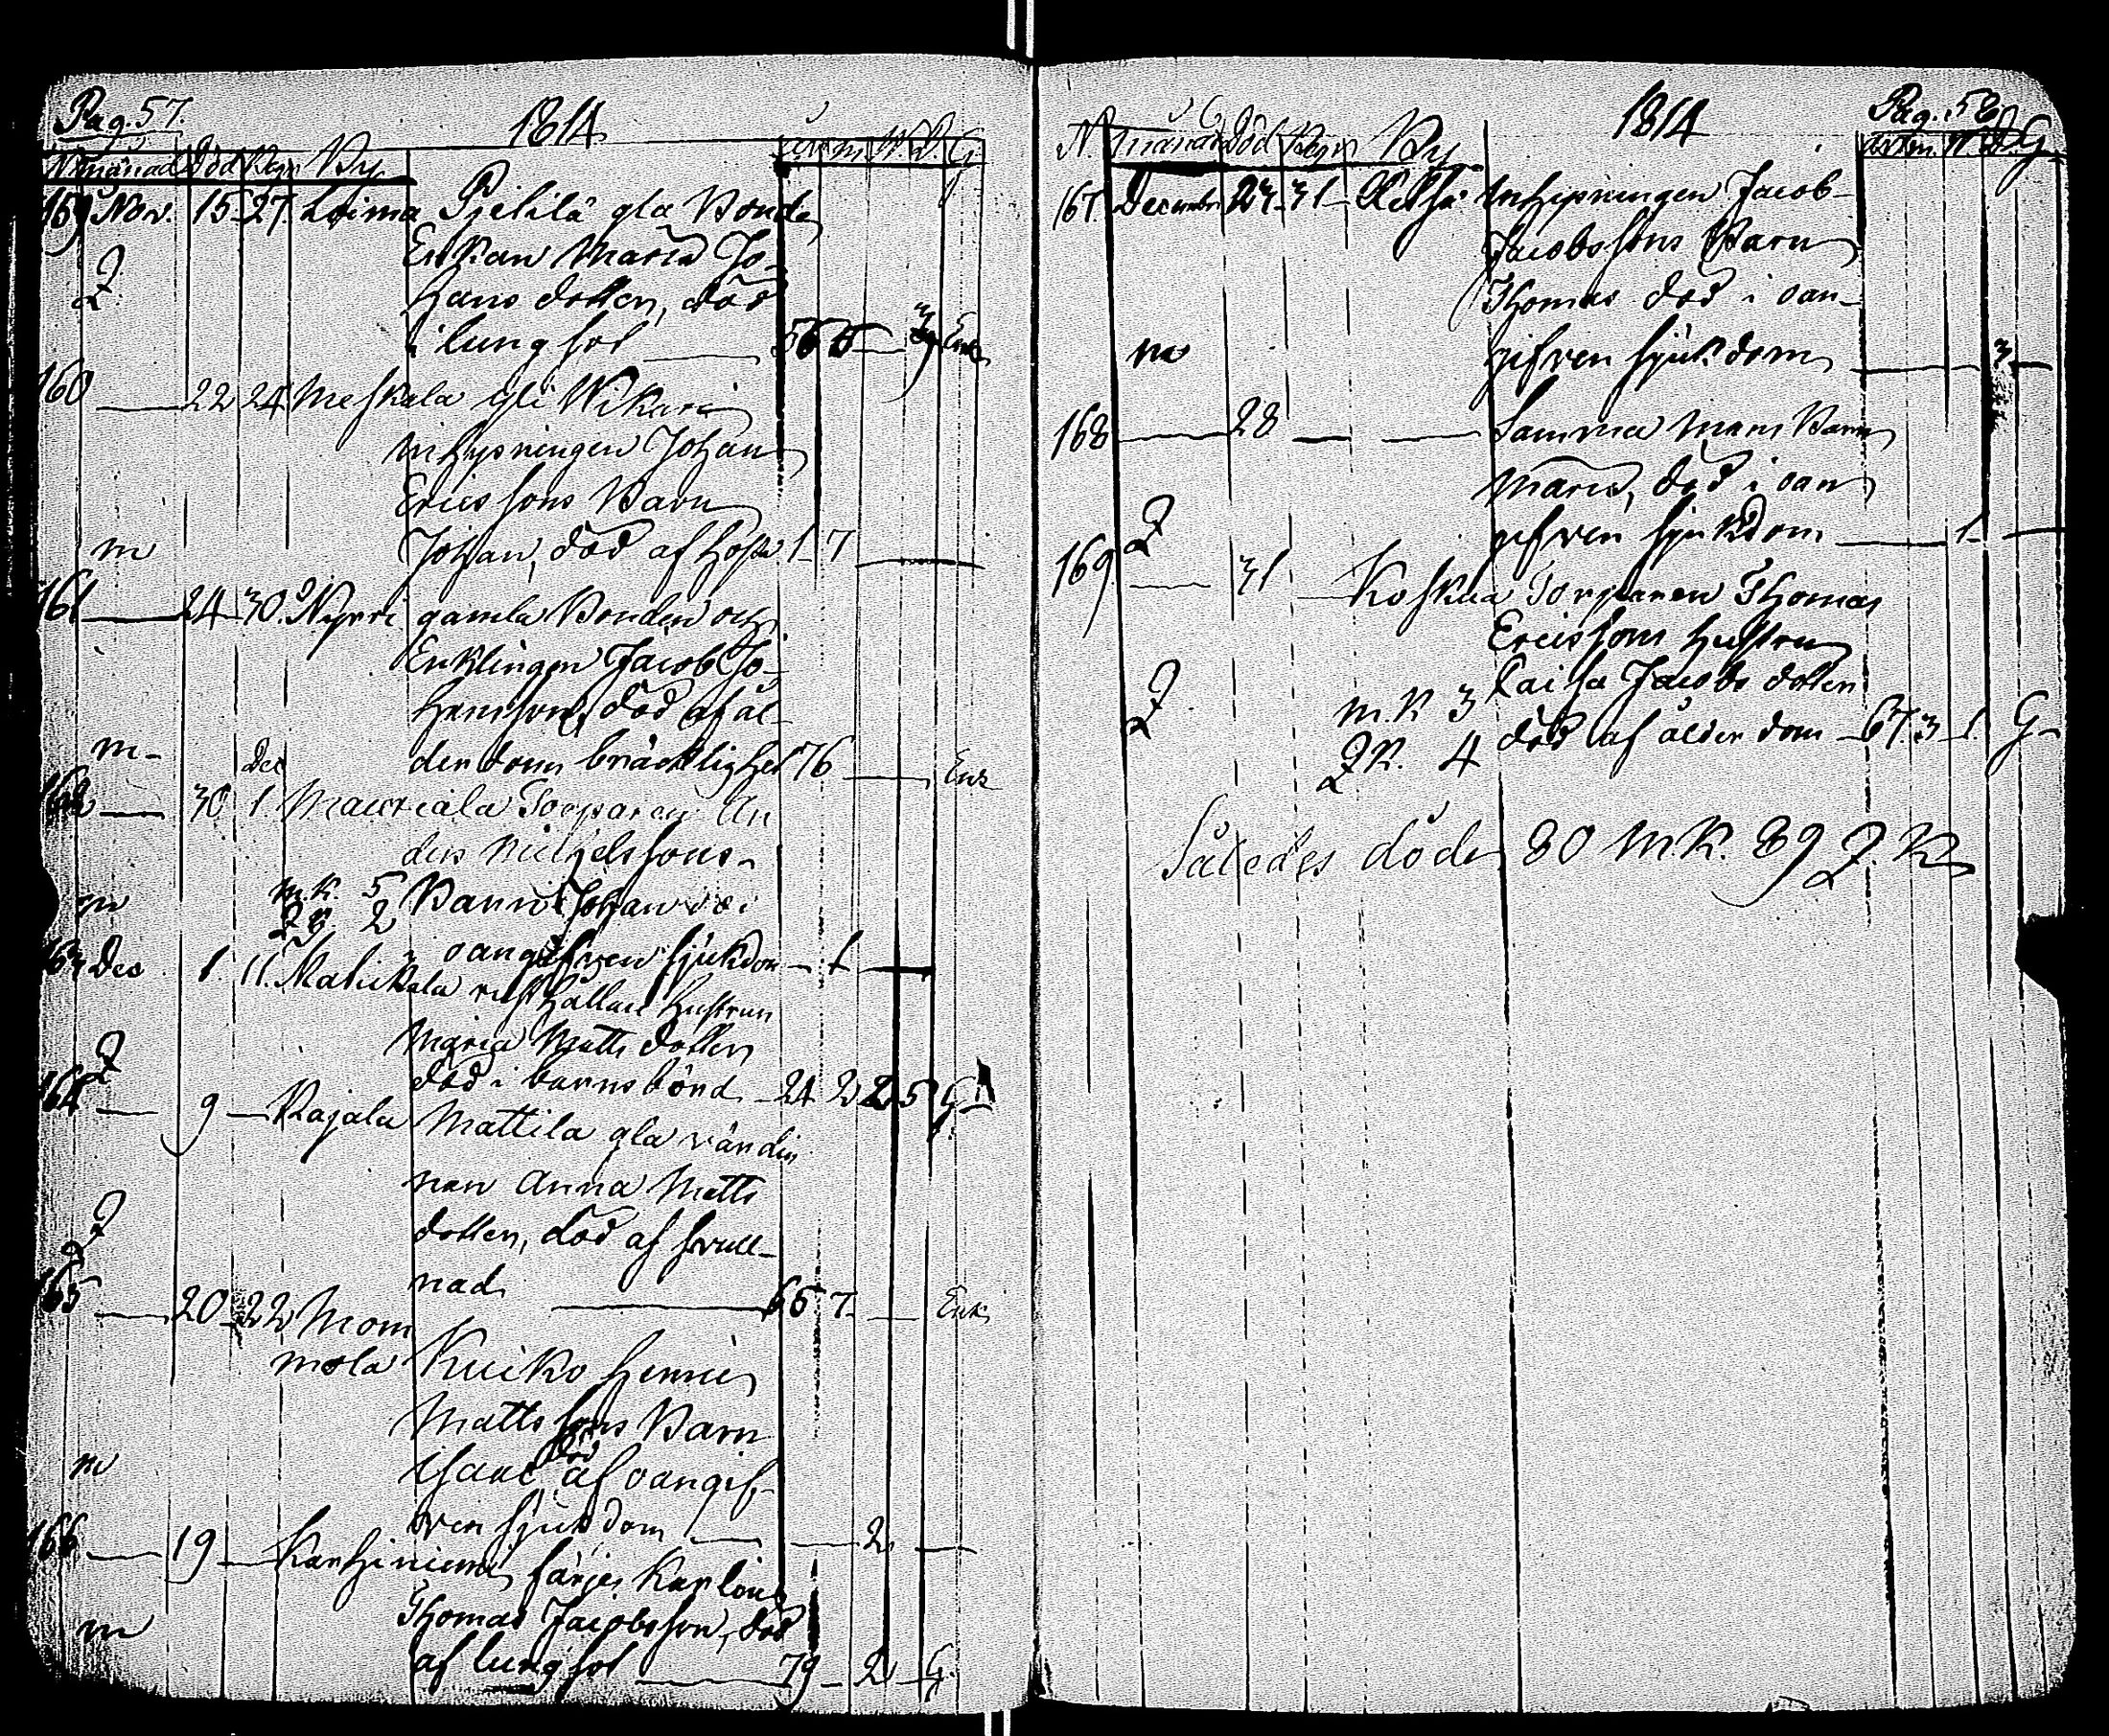 Pag. 57.
1814
N månad Död Begr By
år m. W. D. G
159 Nov. 15 27. Loima Pjelilä gla Bonde
Enkan Maria Jo-
hans dotter, död
i lungsot
Enk
160 — 22 24 Meskala Wikari
inhysningen Johan
Ericssons Barn
m Johan, död af hosta 1 7 —
161 — 24 30. Nyrri gamla Bonden och
Enklingen Jacob Jo-
hansson, död af ål-
m - Dec derdoms bräcklighet 76 — Enk
162 — 30 1. Torparen An
ders Michelssons
m m.K. 5 Barn Johan i
2 oangifven sjukdom — 1 —
163 Dec 1. 11. Mahikala rusthållare hustrun
Maria Matts dotter
död i barnsbönd 24 2 2 5 G
164 — 9 — Rajala Mattila gla värdin
nan Anna Matts
dotter, död af svull-
nad — 66 7 — Enk
165 — 20 22 Mom
mola Kuiko Henric
Mattssons Barn
död
m Isaac af oangif-
ven sjukdom — — 2 —
166 — 19 — Karhiniemi färje karlen
m Thomas Jacobsson, död
af lungsot — 79 — 2 — G.
1814
Pag. 58
N. månad Död Begr By
W. D. G
167. December 23 31 — inhysningen Jacob
Jacobssons Barn
Thomas död i oan-
m gifven sjukdom — 3 —
168 — 28 — — Samma mans Barn
Maria, död i oan
gifven sjukdom — 1 —
169 — 31 — Koskua Torparen Thomas
Ericssons hustru
m.K 3 Caisa Jacobs dotter
Q K. 4 död af ålderdom — 67. 3 1. G -
Således döde 80 m.K. 89 Q. K